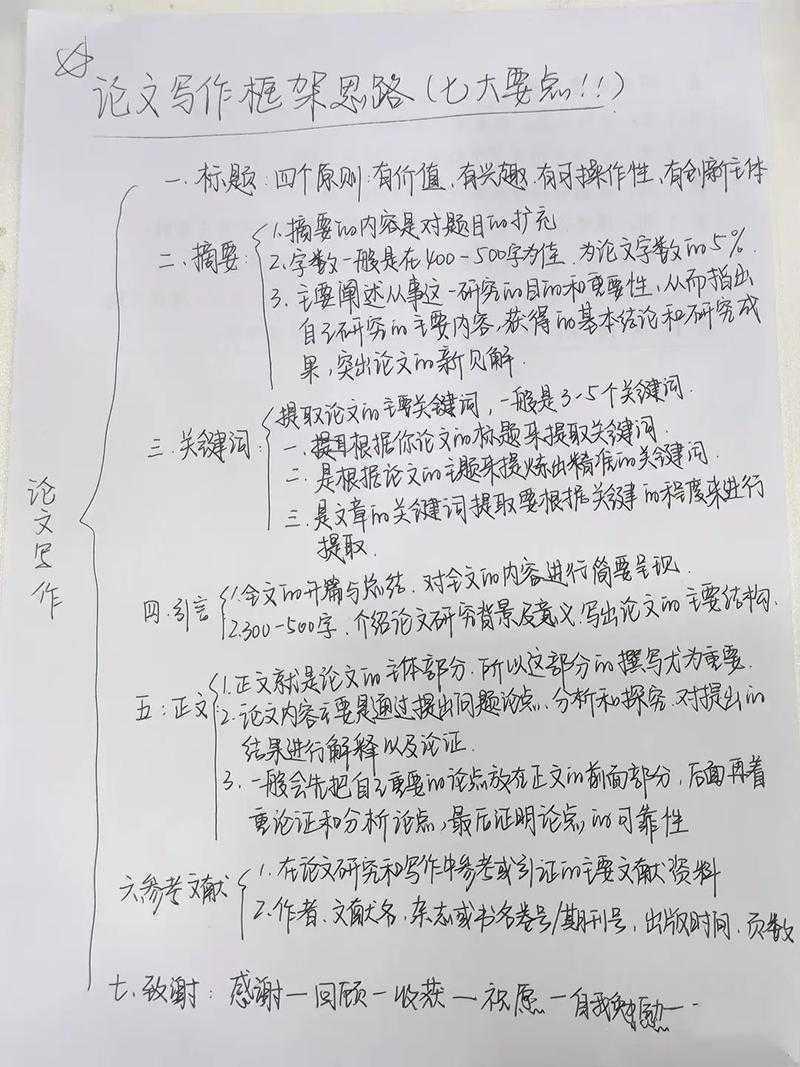 论文写作框架思路(七大要点!!)
论文写作
一.标题:四个原则:有价值、有兴趣、有可操作性、有创新主体
二.摘要:
1.摘要的内容是对题目的扩充
2.字数一般是在400-500字为佳,为论文字数的5%.
3.主要阐述从事这一研究的目的和重要性,从而指出
自己研究的主要内容,获得的基本结论和研究成
果,突出论文的新见解.
三.关键词:
提取论文的主要关键词,一般是3-5个关键词.
一.提取根据你论文的标题来提取关键词.
二.是根据论文的主题来提炼出精准的关键词.
三.是文章的关键词提取要根据关键的程度来进行
提取.
四.引言
1.全文的开篇与总结.对全文的内容进行简要呈现.
2.300-500字.介绍论文研究背景及意义.写出论文的主要结构.
五:正文
1.正文就是论文的主体部分.所以这部分的撰写尤为重要.
2.论文内容主要是通过提出问题论点、分析和探究.对提出的
结果进行解释以及论证.
3.一般会先把自己重要的论点放在正文的前面部分,后面再着
重论证和分析论点,最后证明论点的可靠性
六参考文献
1.在论文研究和写作中参考或引证的主要文献资料
2.作者、文献名、杂志或书名卷号/期刊号,出版时间、页数
七.致谢:感谢一回顾一收获一祝愿一自我勉励一..